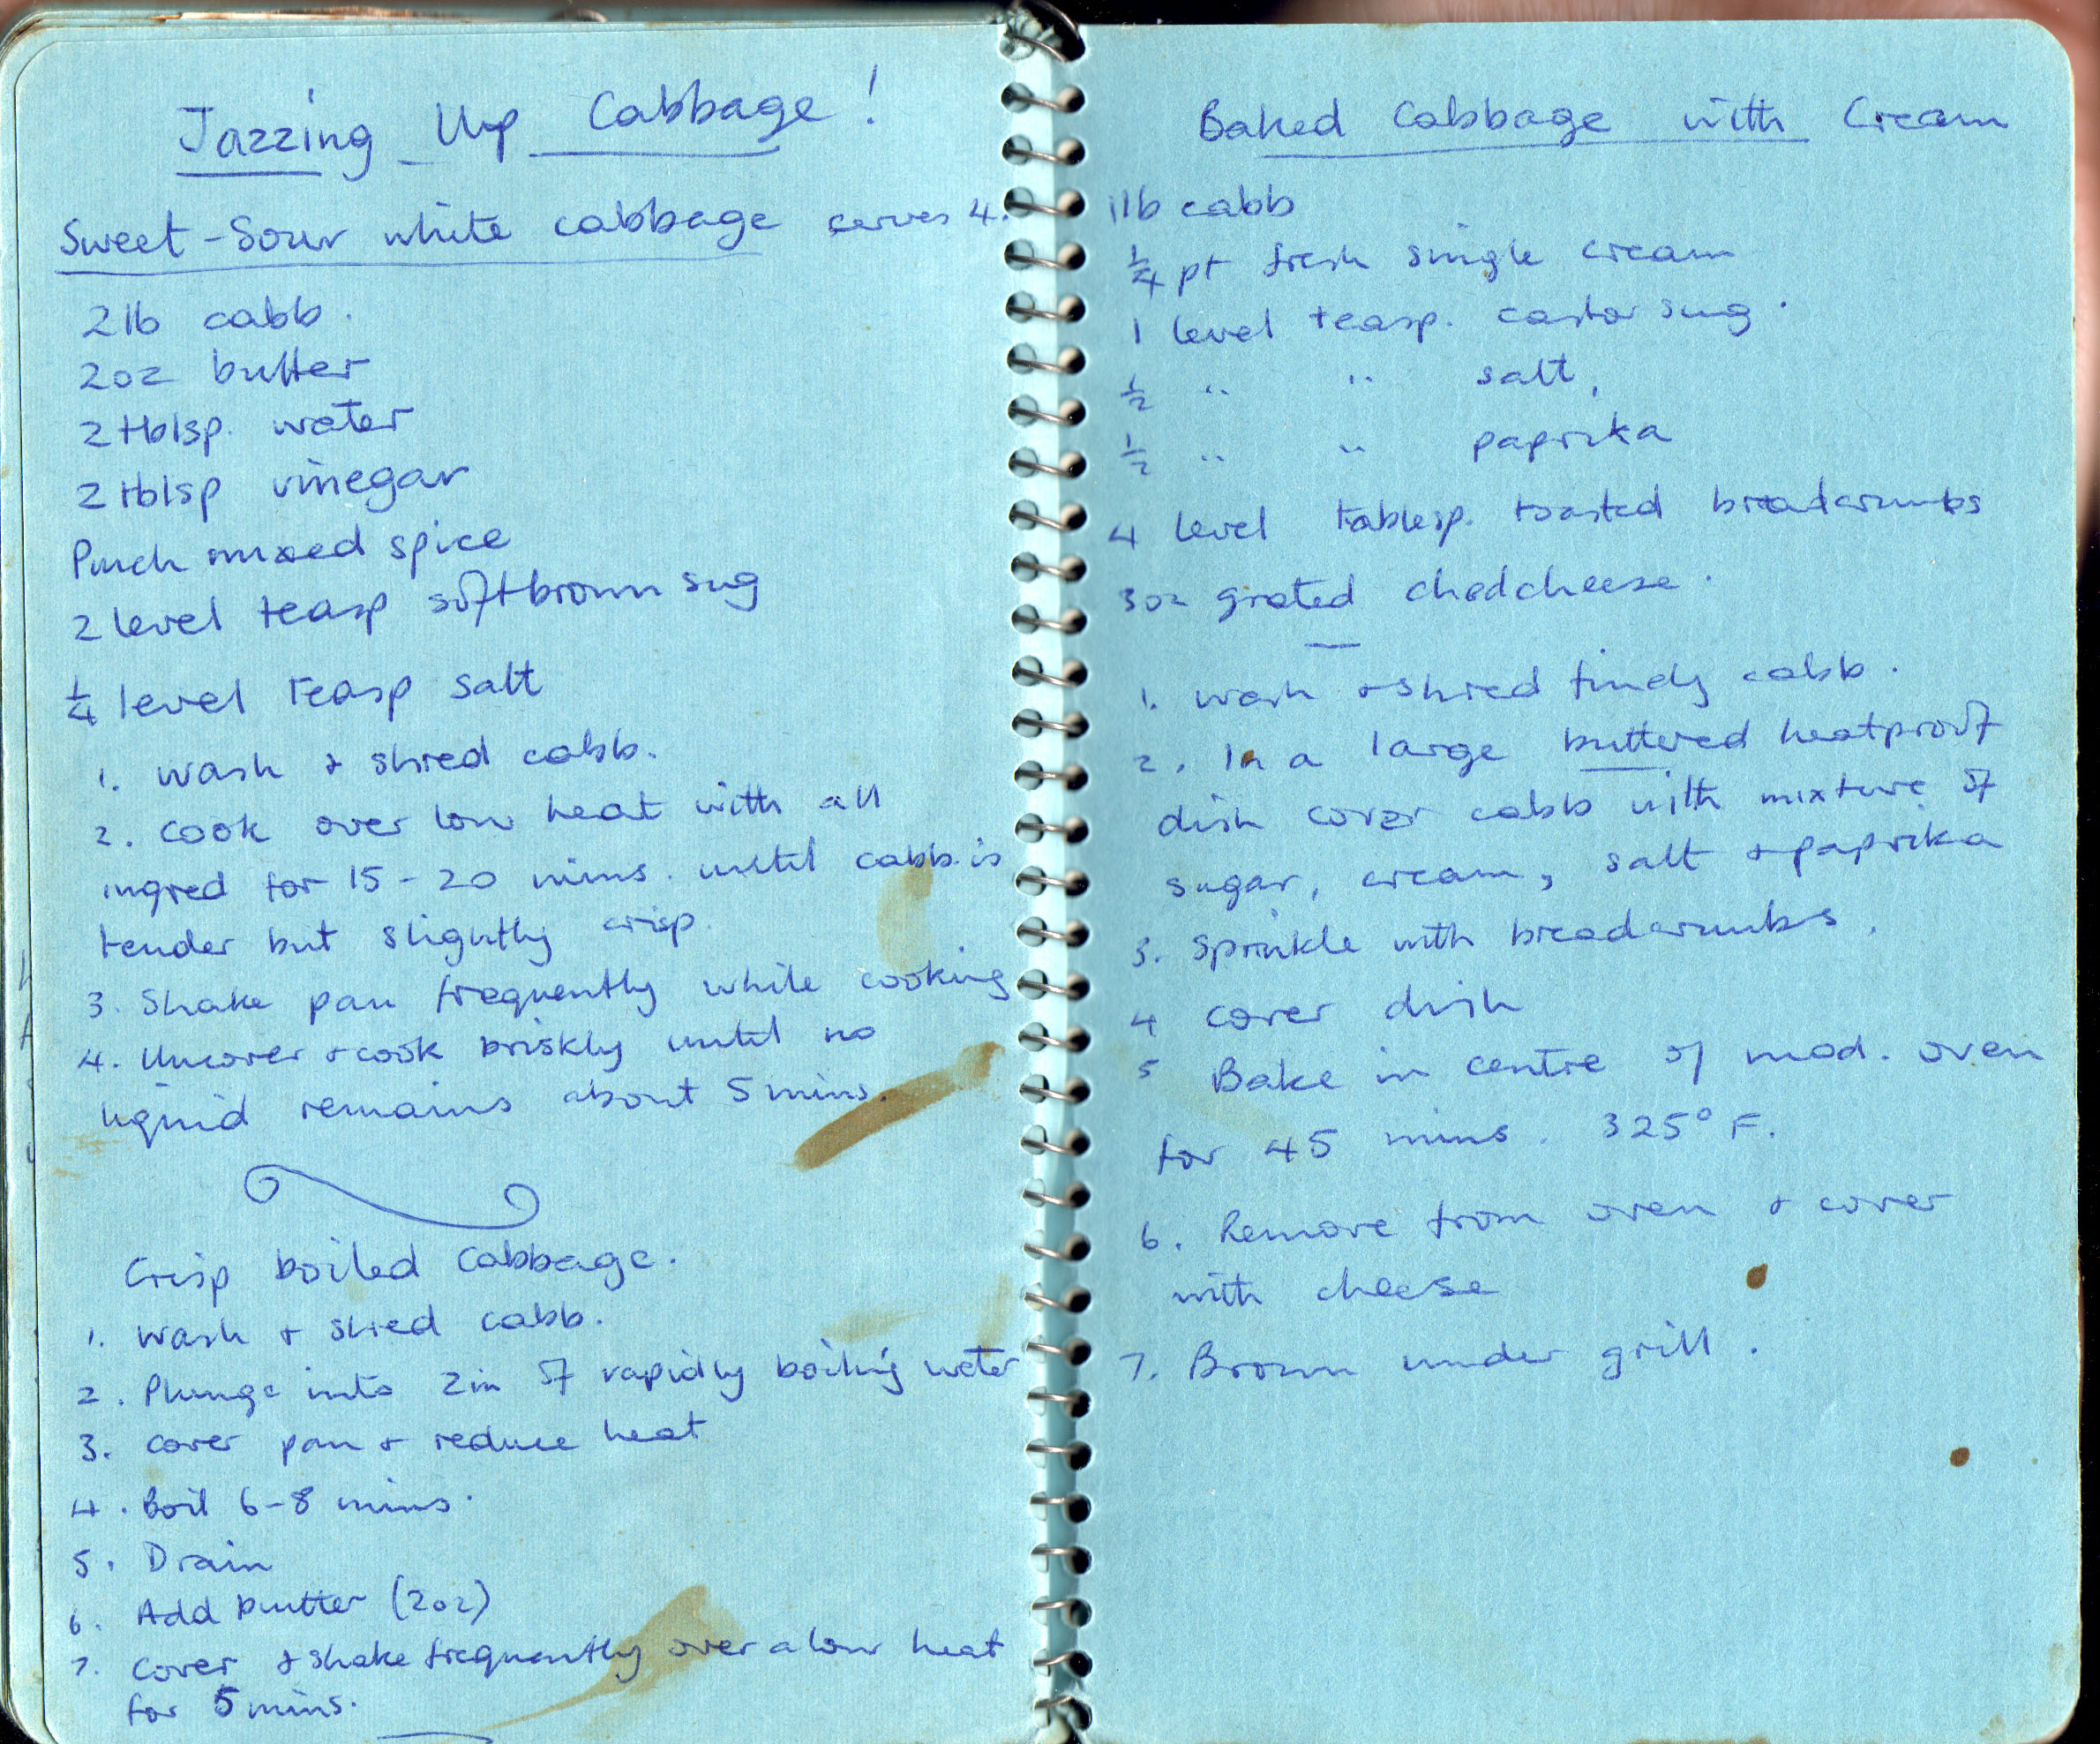 Jazzing Up Cabbage!
Sweet-Sour white cabbage serves 4.
2lb cabb.
2oz butter
2tblsp. water
2tblsp vinegar
Pinch mixed spice
2 level teasp soft brown sug
1/4 level teasp salt
1. Wash + shred cabb.
2. Cook over low heat with all
ingred for 15-20 mins. until cabb. is
tender but slightly crisp.
3. Shake pan frequently while cooking
4. Uncover + cook briskly until no
liquid remains about 5 mins.
Crisp boiled Cabbage.
1. Wash + shred cabb.
2. Plunge into 2in of rapidly boiling water
3. Cover pan + reduce heat
4. Boil 6-8 mins.
5. Drain
6. Add butter (2oz)
7. Cover + shake frequently over a low heat
for 5 mins.
Baked Cabbage with Cream
1lb cabb
1/4 pt fresh single cream
1 level teasp. castor sug.
1/2 " " salt,
1/2 " " paprika
4 level tablesp. toasted breadcrumbs
3oz grated chedcheese.
1. Wash + shred finely cabb.
2. In a large buttered heatproof
dish cover cabb with mixture of
sugar, cream, salt + paprika
3. Sprinkle with breadcrumbs.
4 Cover dish
5 Bake in centre of mod. oven
for 45 mins. 325°F.
6. Remove from oven + cover
with cheese
7. Brown under grill.